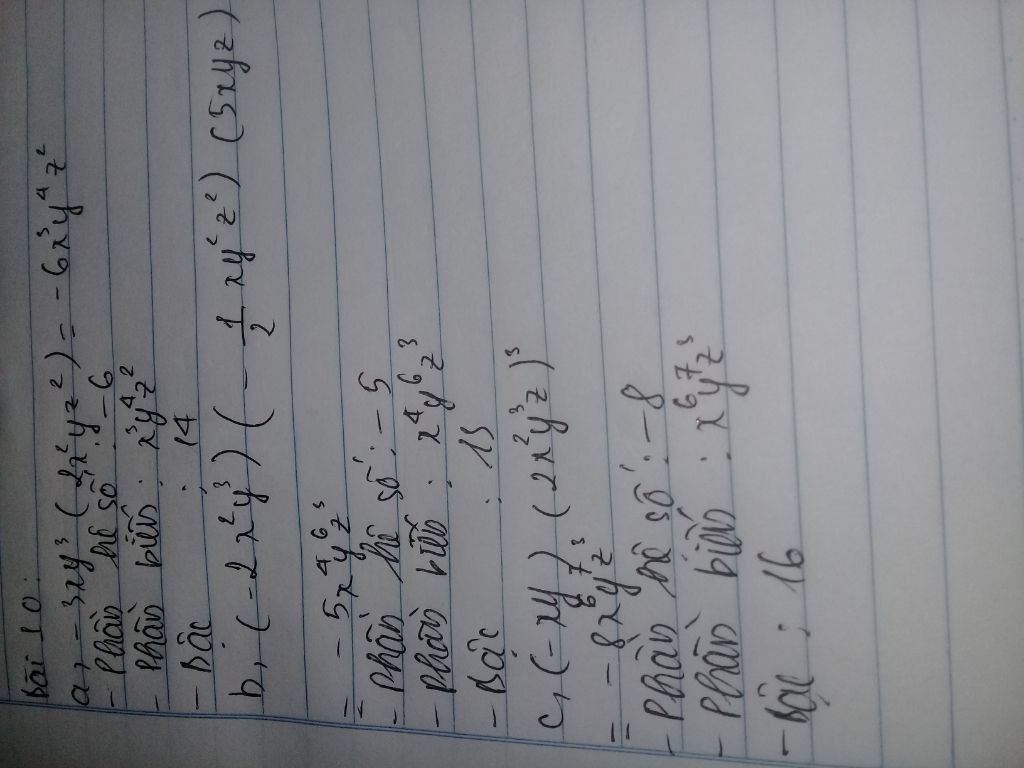 Bài 10:
a, -3xy³ (2x²yz²) = -6x³y⁴z²
- Phần hê số : -6
- Phần biến : x³y⁴z²
- Bậc : 14
b, (-2x²y³) (-1/2 xy²z²) (5xyz)
= -5x⁴y⁶z³
- Phần hê số : -5
- Phần biến : x⁴y⁶z³
- Bậc : 13
c, (-xy) (2x²y³z)³
= -8x⁶y⁷z³
- Phần hê số : -8
- Phần biến : x⁶y⁷z³
- Bậc : 16